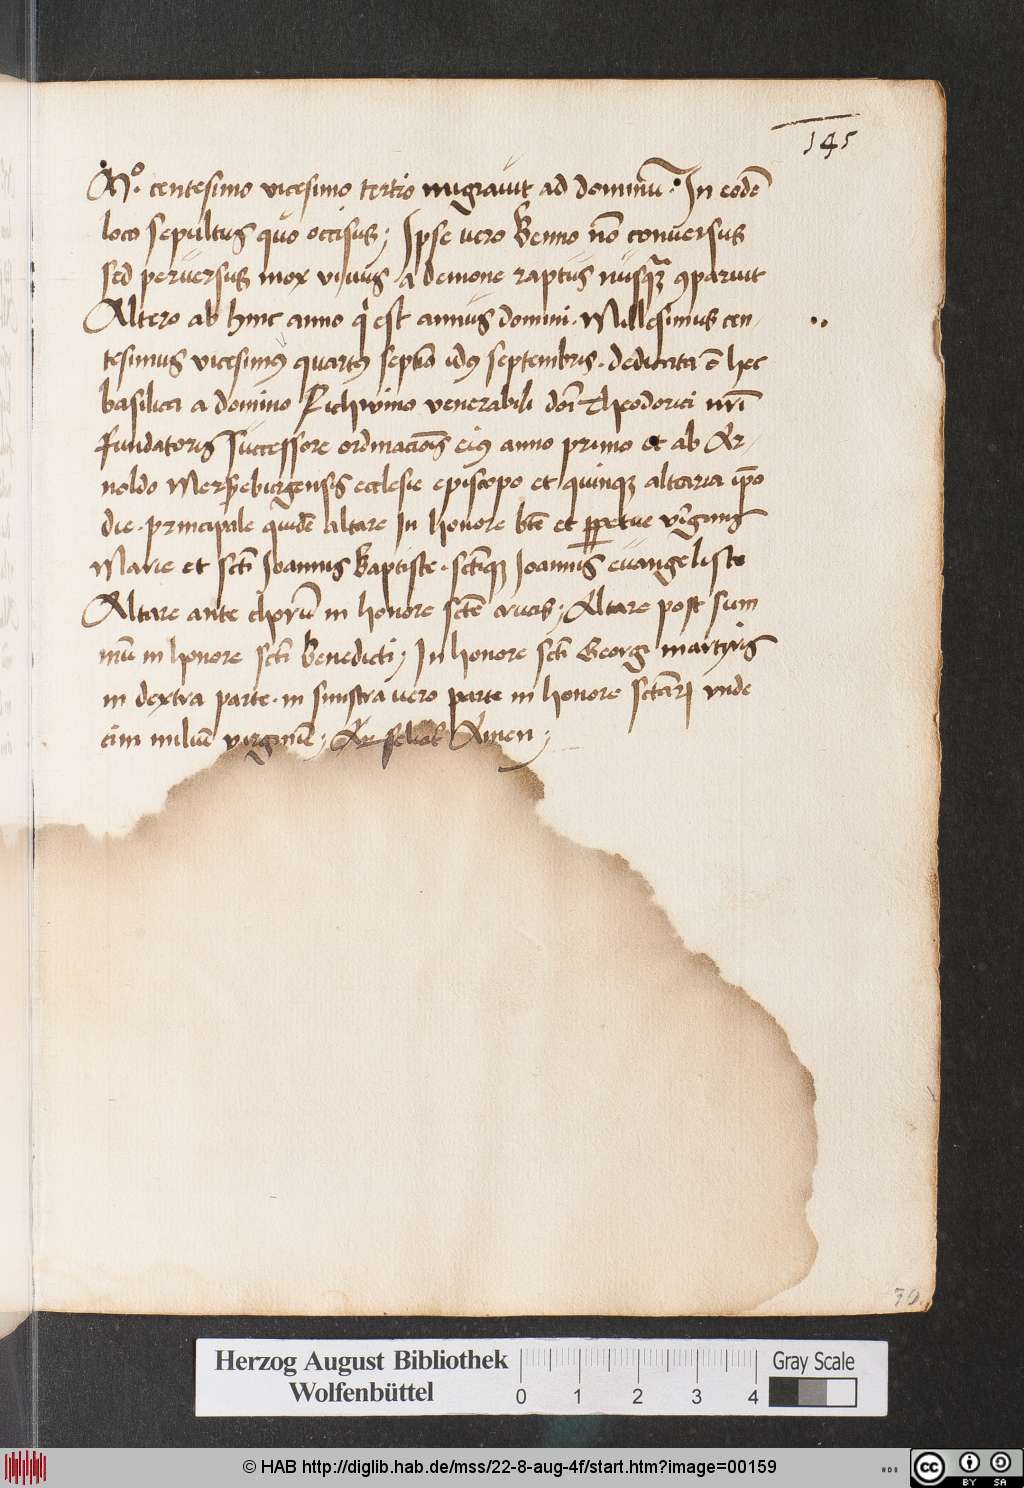 145
Mº. centesimo vicesimo tertio migravit ad dominū. In eodē
loco sepultus quo occisus; Ipse vero Benno nō conversus
sed perversus mox vivus a demone raptus nusqꝫ ꝯparuit
Altero ab hinc anno q̇ est annus domini. Millesimus cen-
tesimus vicesimꝰ quartꝰ septīo idꝰ septembris. dedicata ē hec
basilica a domino Richwino venerabili dōi Theodorici nr̄i
fundatoris successore ordinacionīs eiꝰ anno primo et ab Ar-
noldo Mersseburgensis ecclesie episcopo et quinqꝫ altaria ip̄o
die. principale quidē altare In honore btē et ꝑpetue v̇ginis
Marie et sct̄i Joannis Baptiste. sct̄iqꝫ Joannis evangeliste
Altare ante chorū in honore sctē crucis; Altare post sum
mū in honore sct̄i Benedicti; In honore sct̄i Georgi martyris
in dextra parte. in sinistra vero parte in honore sctārꝝ vnde
cim miliū virginū; Amen;
39.
Herzog August Bibliothek
Wolfenbüttel
0 1 2 3 4
Gray Scale
© HAB http://diglib.hab.de/mss/22-8-aug-4f/start.htm?image=00159
HAB
cc BY SA